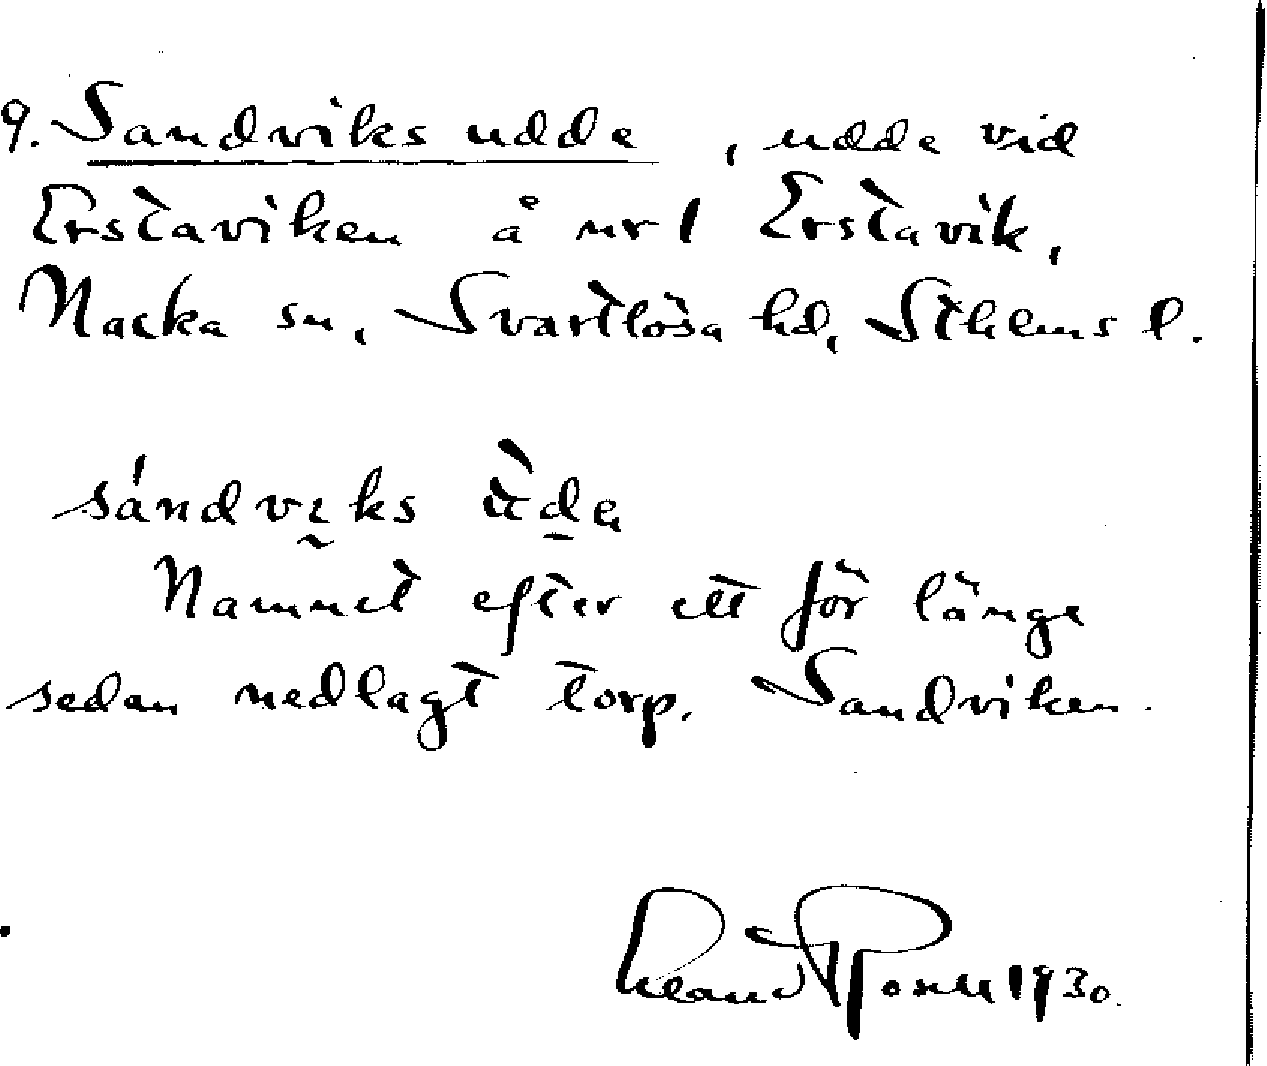 9. Sandviks udde, udde vid
Erstaviken å nr 1 Erstavik,
Nacka sn, Svartlösa hd, Sthlms l.
sándvɩ̰ks ùd̲a
Namnet efter ett för länge
sedan nedlagt torp, Sandviken.
1930.